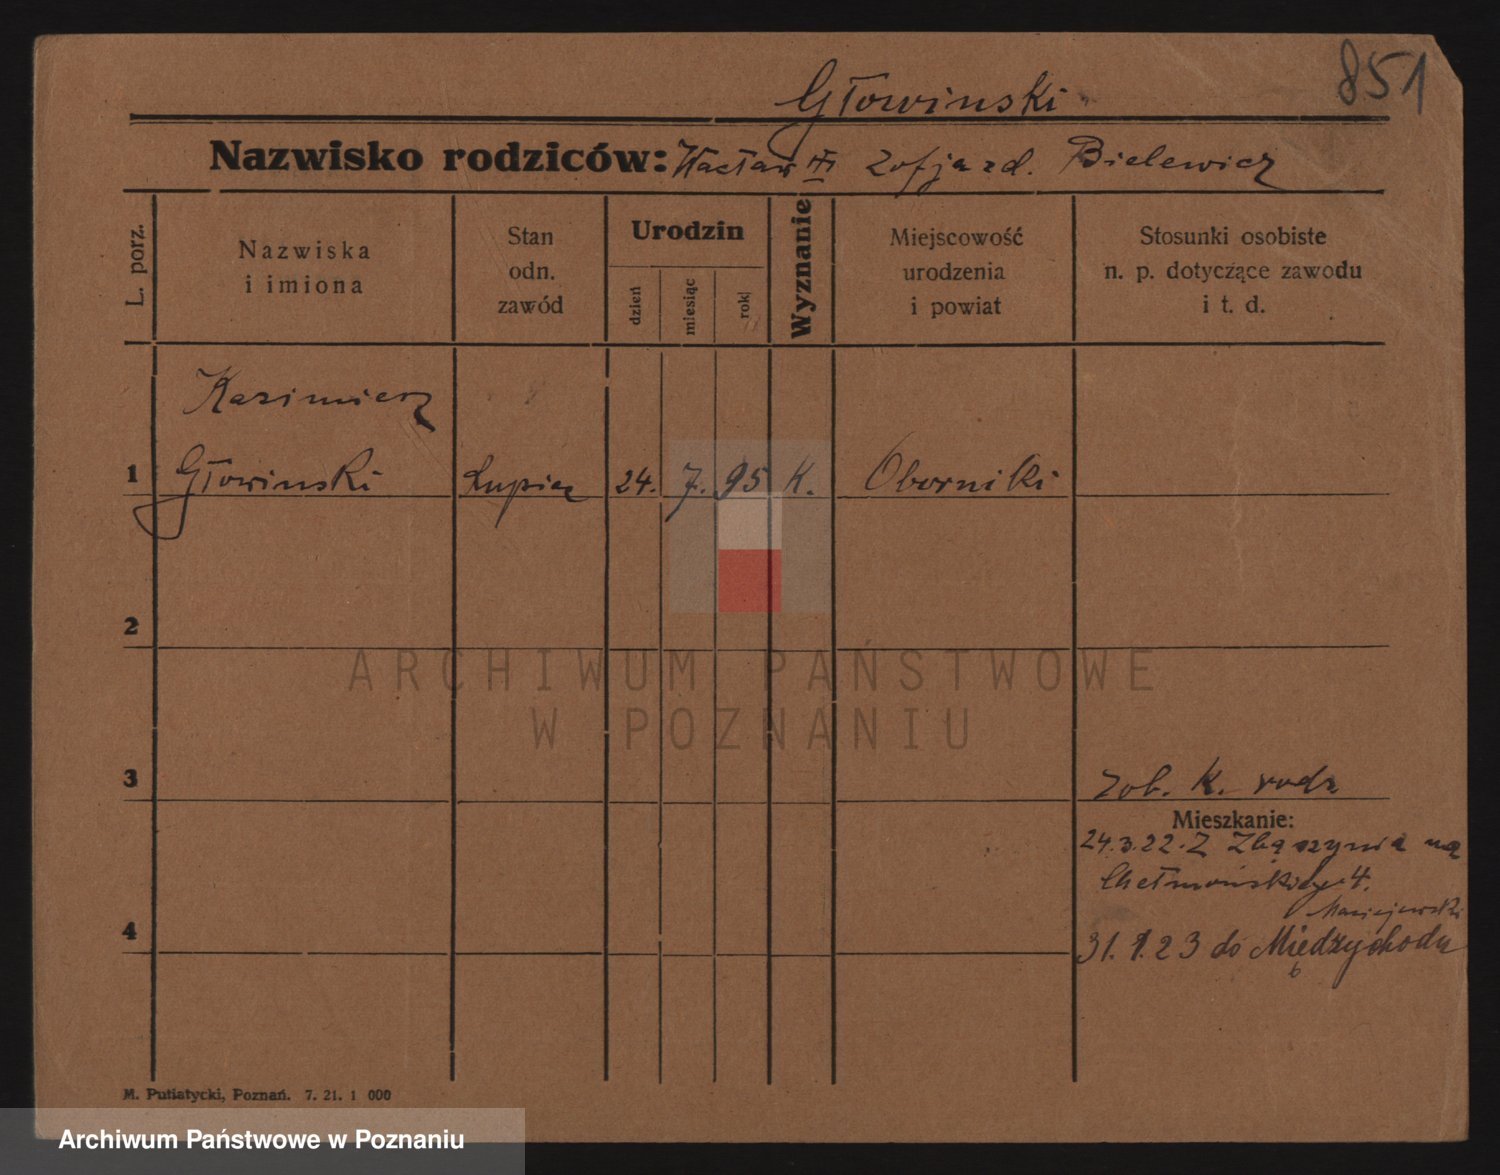 851
Głowinski
Nazwisko rodziców: Wacław Zofja zd. Bielewicz
L. porz.
Nazwiska
i imiona
Stan
odn.
zawód
Urodzin
dzień
miesiąc
rok
Wyznanie
Miejscowość
urodzenia
i powiat
Stosunki osobiste
n. p. dotyczące zawodu
i t. d.
Kazimierz
1 Głowinski Kupiec 24. 7. 95 K. Oborniki
2
ARCHIWUM PAŃSTWOWE
W POZNANIU
3
zob. K. rodz
Mieszkanie:
24.3.22. Z Zbąszynia na
Chełmońskiego 4.
Maciejewski
4
31. 1. 23 do Międzychodu
M. Putiatycki, Poznań. 7. 21. 1 000
Archiwum Państwowe w Poznaniu